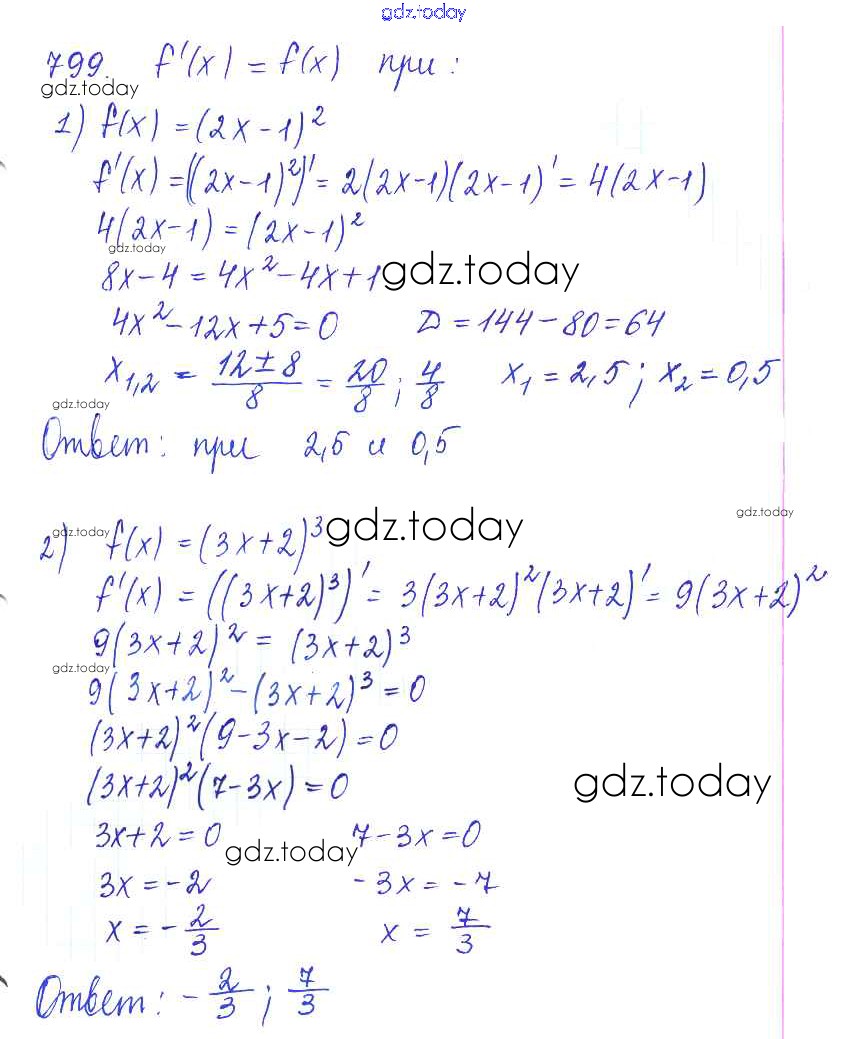 gdz.today
799. f'(x) = f(x) при:
gdz.today
1) f(x) = (2x-1)²
f'(x) = ((2x-1)²)' = 2(2x-1)(2x-1)' = 4(2x-1)
4(2x-1) = (2x-1)²
gdz.today
8x-4 = 4x²-4x+1 gdz.today
4x²-12x+5=0 D = 144-80=64
x₁,₂ = (12±8)/8 = 20/8 ; 4/8 x₁ = 2,5 ; x₂ = 0,5
gdz.today
Ответ: при 2,5 и 0,5
gdz.today
2) gdz.today f(x) = (3x+2)³ gdz.today
f'(x) = ((3x+2)³)' = 3(3x+2)²(3x+2)' = 9(3x+2)²
9(3x+2)² = (3x+2)³
gdz.today
9(3x+2)²-(3x+2)³=0
(3x+2)²(9-3x-2)=0
(3x+2)²(7-3x)=0
gdz.today
3x+2=0 7-3x=0
gdz.today
3x=-2 -3x=-7
x=-2/3 x = 7/3
Ответ: -2/3 ; 7/3